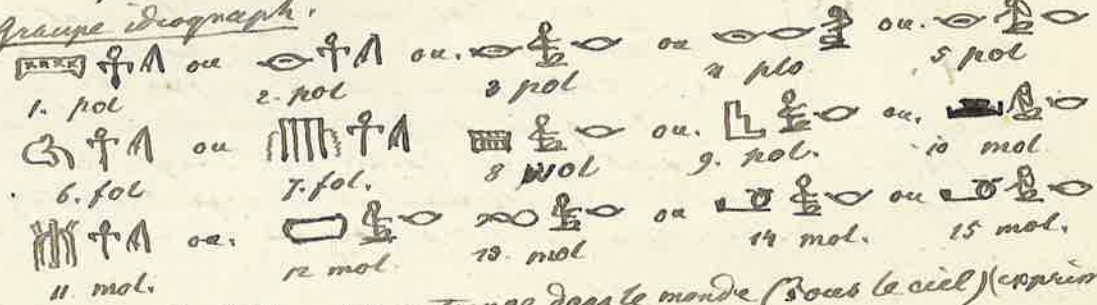 Groupe idiograph.
ou ou. ou ou.
1. pol 2. pol 3 pol 4 plo 5 pol
ou ou. ou.
6. fol 7. fol. 8 pol 9. pol. 10 mol
ou. ou ou
11. mol. 12 mol. 13. mol 14 mol. 15 mol.
dans le monde (sous le ciel) (exprim